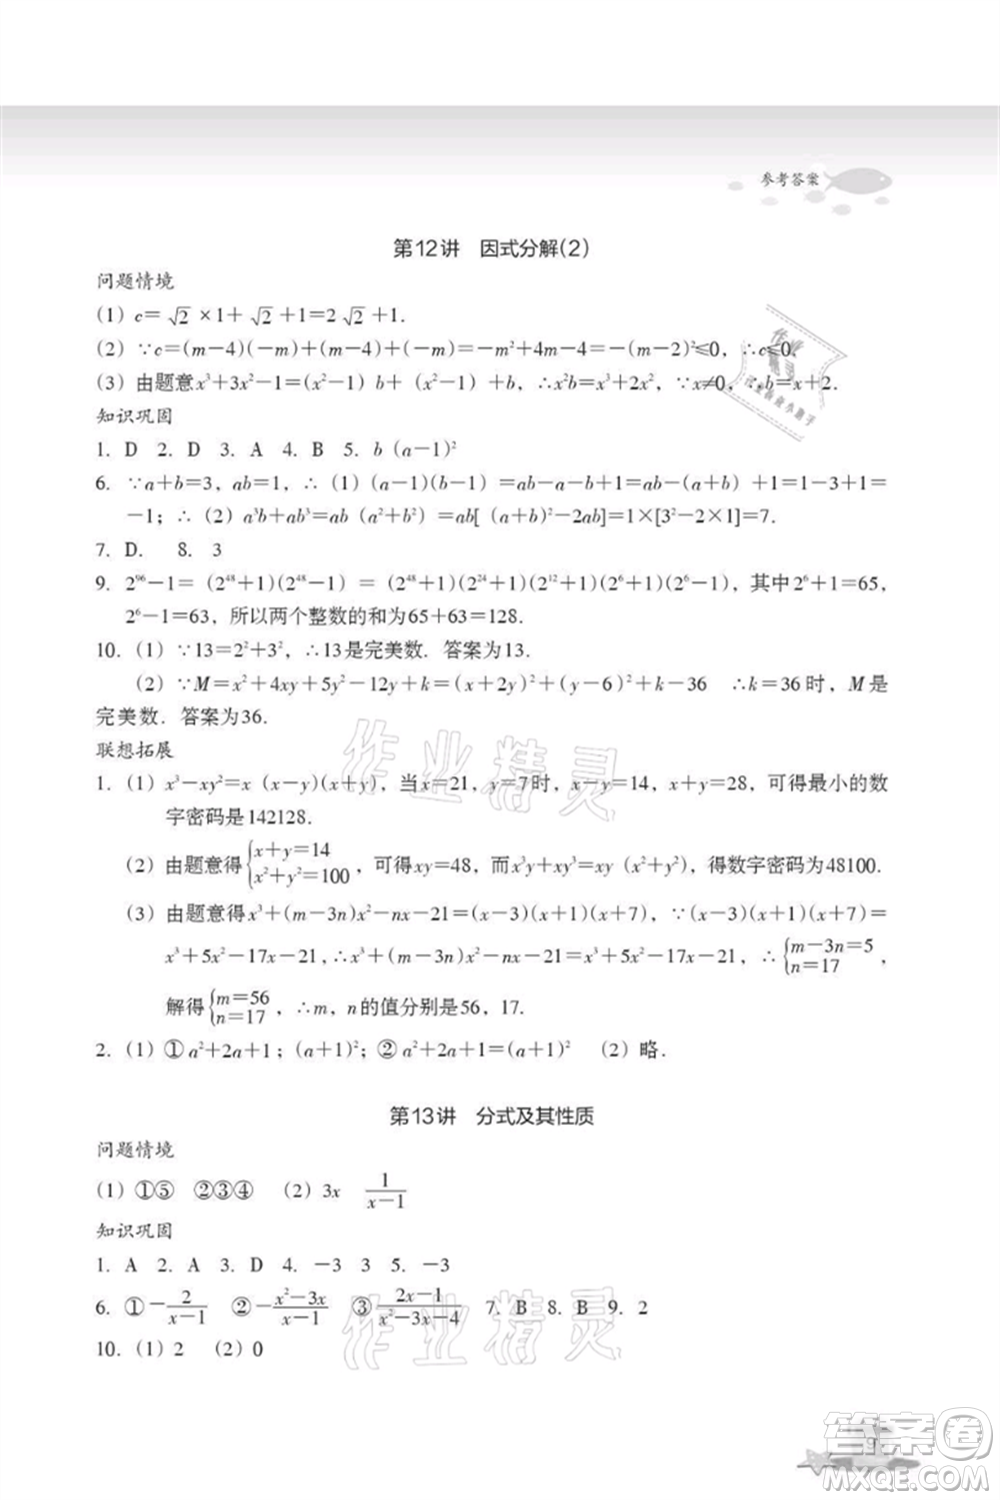 参考答案
第12讲 因式分解(2)
问题情境
(1) c=√2×1+√2+1=2√2+1.
(2) ∵c=(m-4)(-m)+(m-4)+(-m)=-m²+4m-4=-(m-2)²≤0, ∴c≤0.
(3) 由题意x³+3x²-1=(x²-1)b+(x²-1)+b, ∴x²b=x³+2x², ∵x≠0, ∴b=x+2.
知识巩固
1. D 2. D 3. A 4. B 5. b(a-1)²
6. ∵a+b=3, ab=1, ∴(1)(a-1)(b-1)=ab-a-b+1=ab-(a+b)+1=1-3+1=
-1; ∴(2)a³b+ab³=ab(a²+b²)=ab[(a+b)²-2ab]=1×[3²-2×1]=7.
7. D. 8. 3
9. 2⁹⁶-1=(2⁴⁸+1)(2⁴⁸-1)=(2⁴⁸+1)(2²⁴+1)(2¹²+1)(2⁶+1)(2⁶-1), 其中2⁶+1=65,
2⁶-1=63, 所以两个整数的和为65+63=128.
10. (1) ∵13=2²+3², ∴13是完美数. 答案为13.
(2) ∵M=x²+4xy+5y²-12y+k=(x+2y)²+(y-6)²+k-36 ∴k=36时, M是
完美数. 答案为36.
联想拓展
1. (1) x³-xy²=x(x-y)(x+y), 当x=21, y=7时, x-y=14, x+y=28, 可得最小的数
字密码是142128.
(2) 由题意得{x+y=14 x²+y²=100, 可得xy=48, 而x³y+xy³=xy(x²+y²), 得数字密码为48100.
(3) 由题意得x³+(m-3n)x²-nx-21=(x-3)(x+1)(x+7), ∵(x-3)(x+1)(x+7)=
x³+5x²-17x-21, ∴x³+(m-3n)x²-nx-21=x³+5x²-17x-21, ∴{m-3n=5 n=17,
解得{m=56 n=17, ∴m, n的值分别是56, 17.
2. (1) ①a²+2a+1; (a+1)²; ②a²+2a+1=(a+1)² (2) 略.
第13讲 分式及其性质
问题情境
(1) ①⑤ ②③④ (2) 3x 1/(x-1)
知识巩固
1. A 2. A 3. D 4. -3 3 5. -3
6. ①-2/(x-1) ②-(x²-3x)/(x-1) ③(2x-1)/(x²-3x-4) 7. B 8. B 9. 2
10. (1) 2 (2) 0
作业精灵
作业精灵
答案圈
MXQE.COM